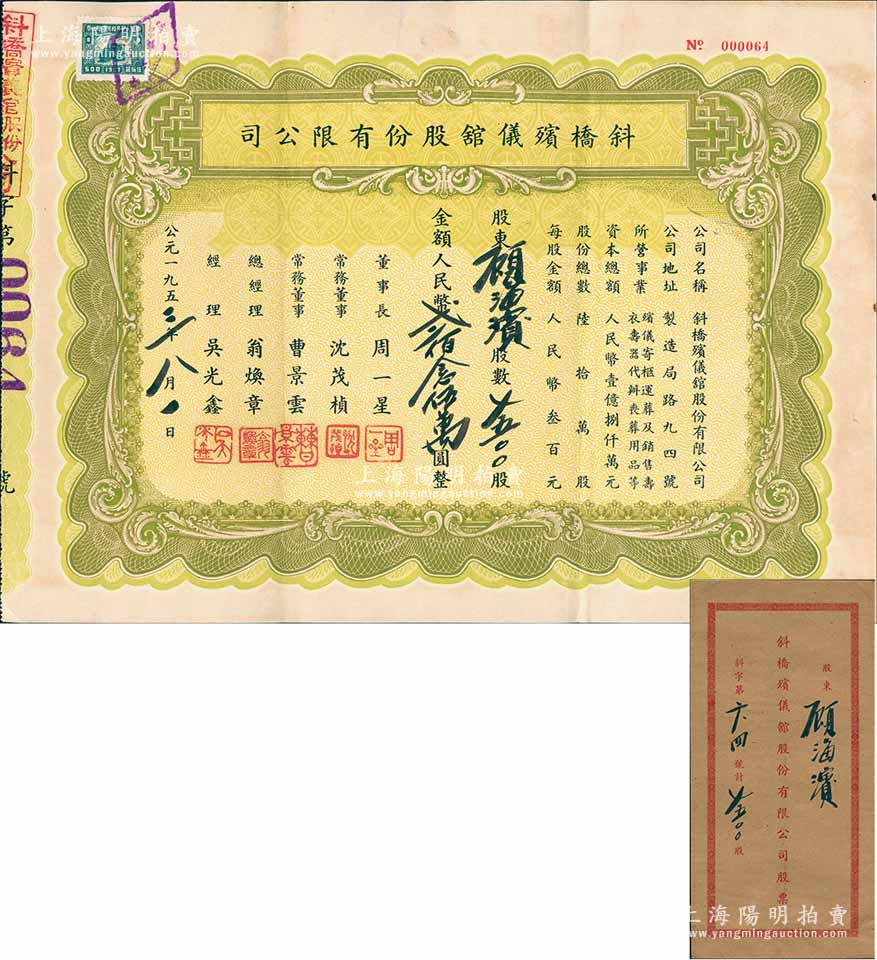 上海陽明拍賣
www.yangmingauction.com
№ 000064
500
斜橋殯儀舘股份有限公司
公司名稱 斜橋殯儀舘股份有限公司
公司地址 製造局路九四號
所營事業 殯儀寄柩運葬及銷售壽衣壽器代辦喪葬用品等
資本總額 人民幣壹億捌仟萬元
股份總數 陸拾萬股
每股金額 人民幣叁百元
股東 顧海濱 股數 股
金額人民幣 圓整
董事長 周一星
常務董事 沈茂楨
常務董事 曹景雲
總經理 翁煥章
經理 吳光鑫
公元一九五三年八月一日
斜字第0064號
上海陽明拍賣
www.yangmingauction.com
股東 顧海濱
斜橋殯儀舘股份有限公司股票
斜字第六四號計 股
上海陽明拍賣
www.yangmingauction.com